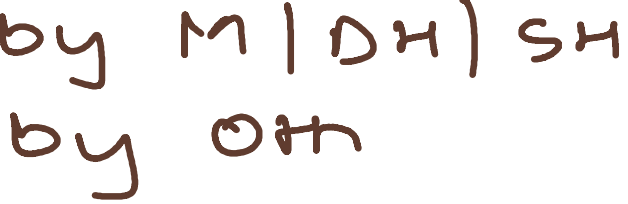 by M | DH | SH
by OH